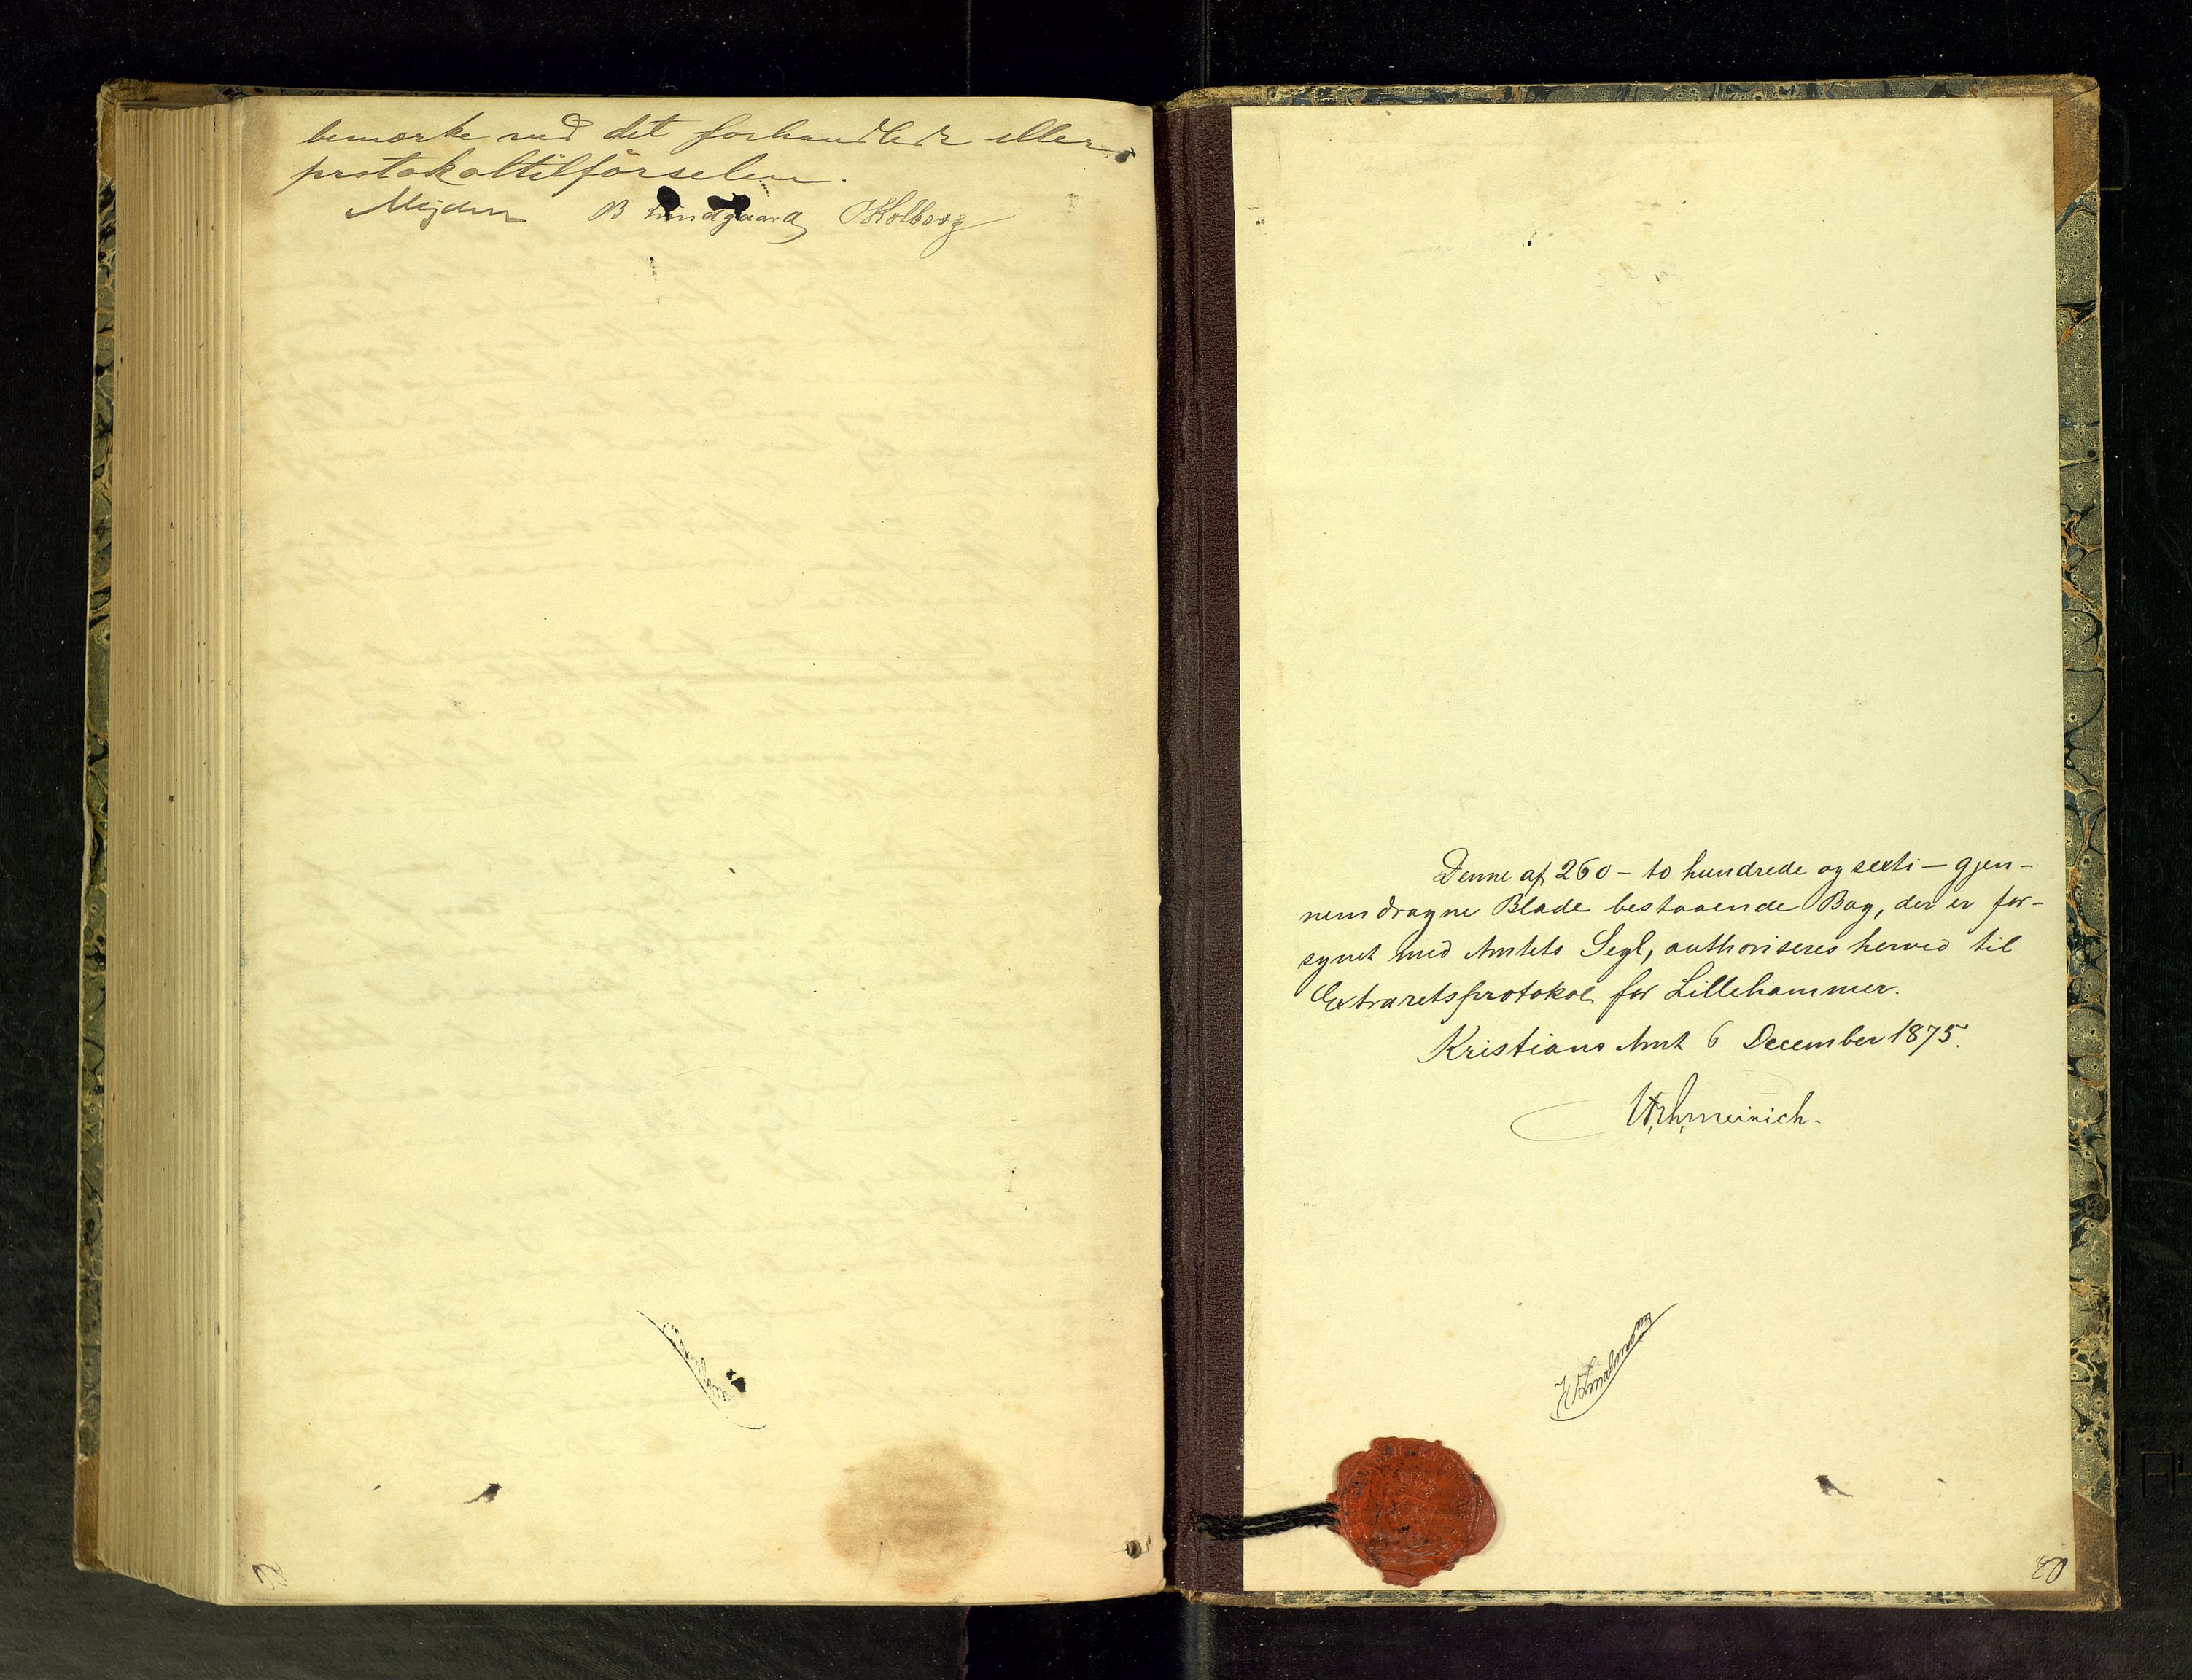 bemærke ved det forhandlede eller
protokoltilförselen.
Mejdem B Lundgaard OKolberg
Denne af 260 - to hundrede og sexti - gjen-
nemdragne Blade bestaaende Bog, der er for-
synet med Amtets Segl, authoriseres herved til
Extraretsprotokol for Lillehammer.
Kristians Amt 6 December 1875.
meinich.